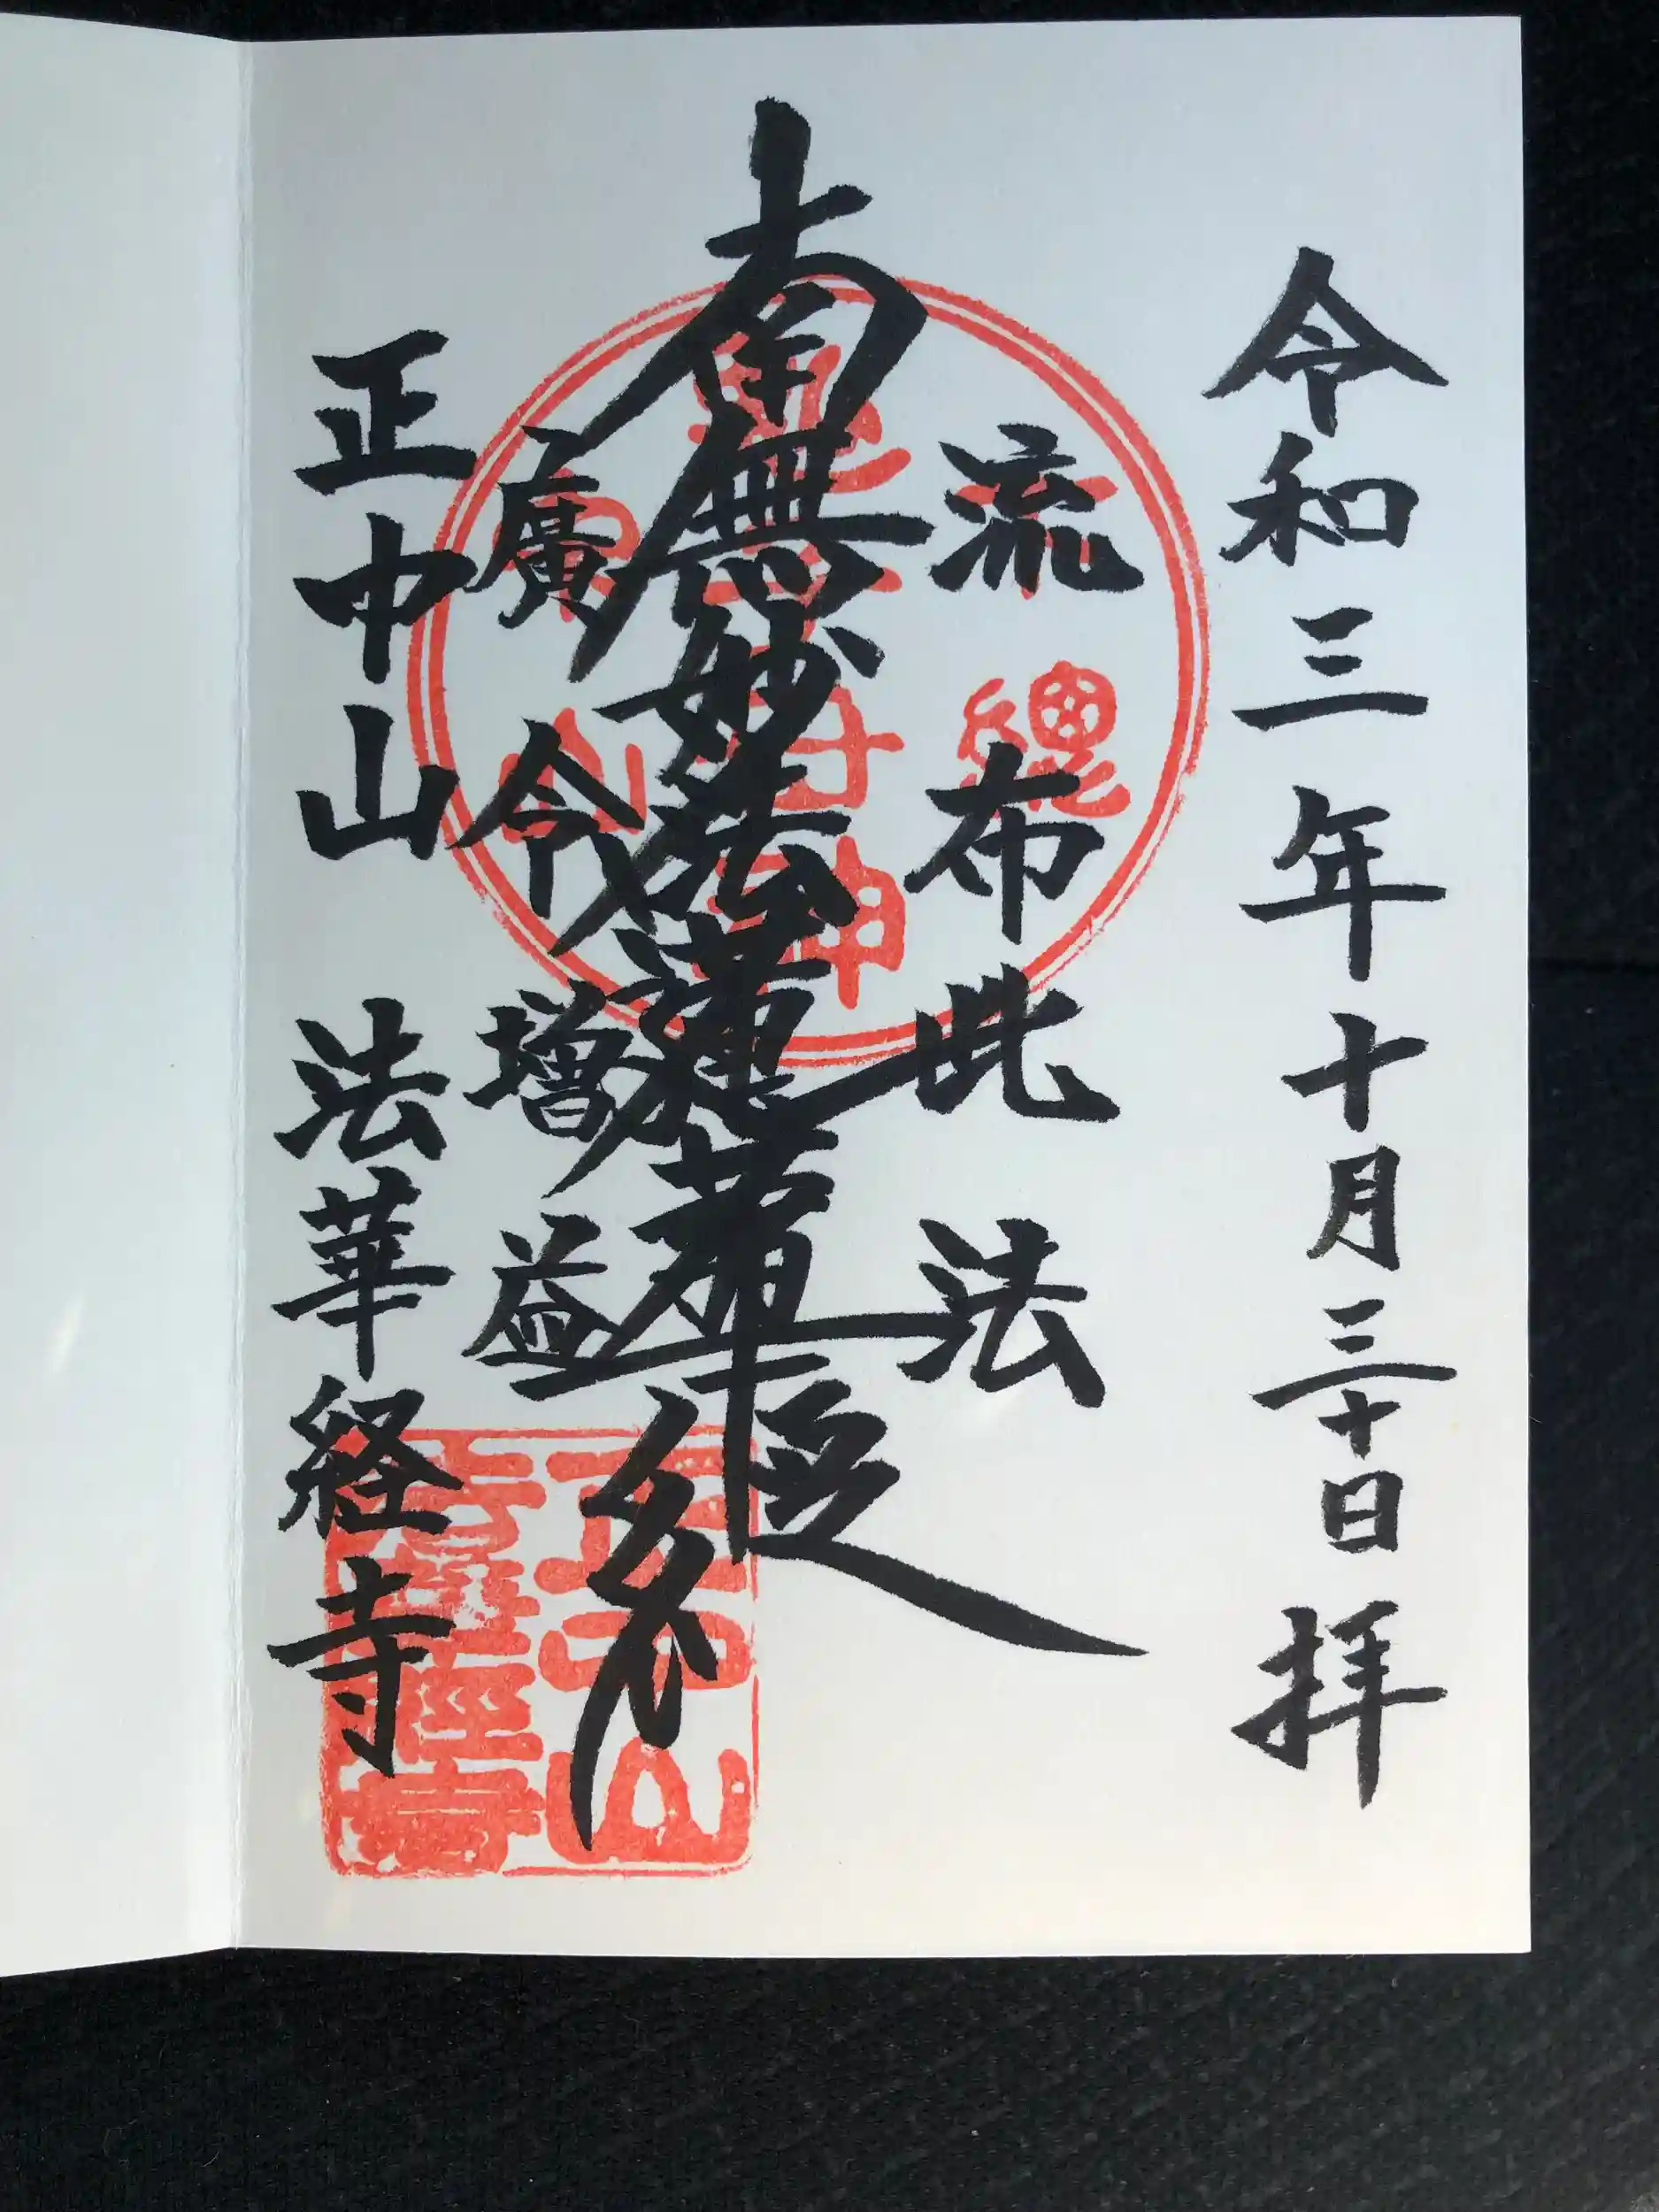 令和三年十月三十日 拝
流布此法
南無妙法蓮華経
廣令増益
正中山 法華経寺
鬼子母神
正中山